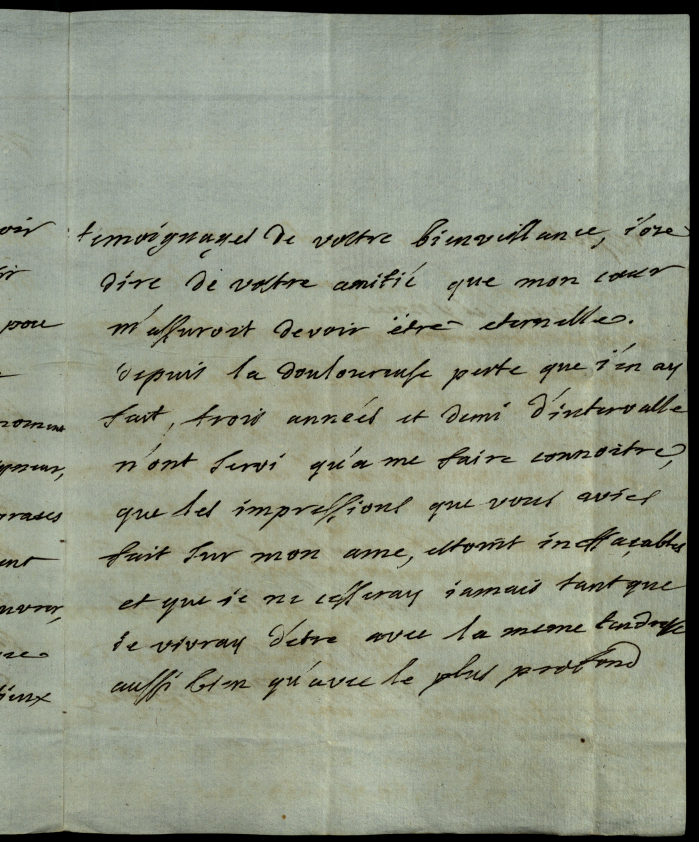 oir
ir
pou
noment
igneur,
prases
ent
ouvrer,
tieux
temoignages de vostre bienveillance, i'ose
dire de vostre amitié que mon cœur
m'assuroit devoir être eternelle.
Depuis la douloureuse perte que i'en ay
fait, trois années et demi d'intervalle
n'ont servi qu'a me faire connoitre,
que les impressions que vous aviés
fait sur mon ame, estoint ineffaçables
et que ie ne cesseray iamais tant que
ie vivray d'etre avec la meme tendresse
aussi bien qu'avec le plus profond